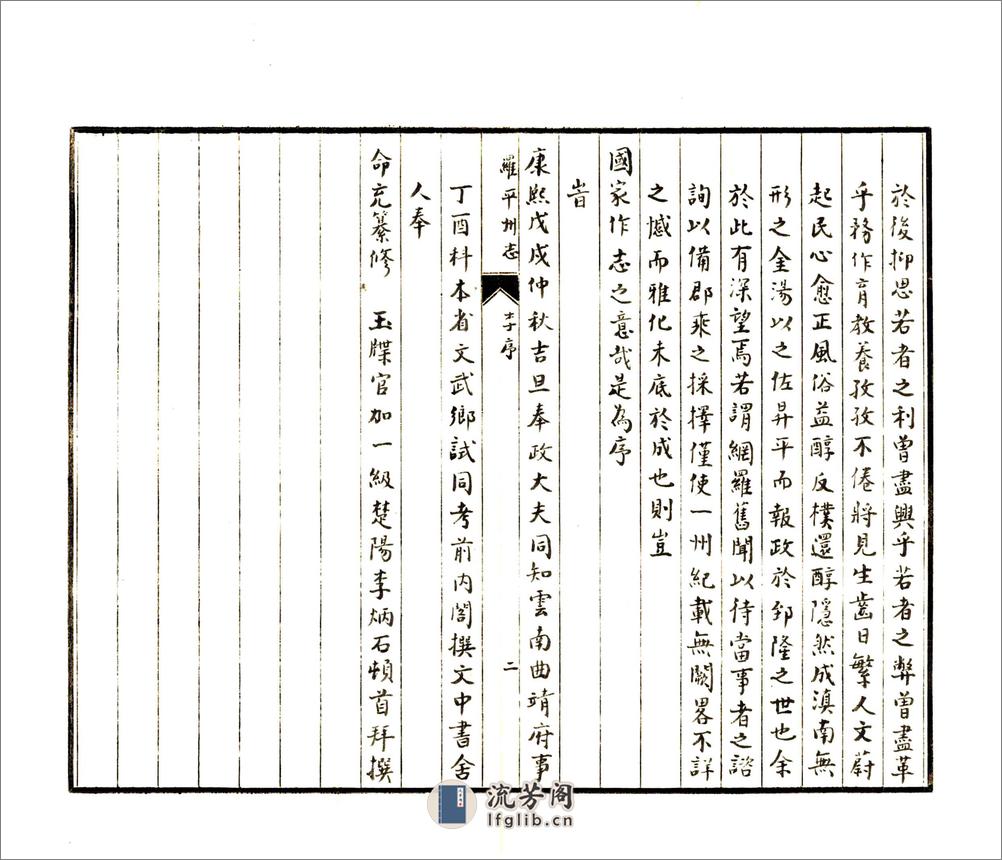 於後抑思若者之利曾盡興乎若者之弊曾盡革
乎務作育教養孜孜不倦將見生齒日繁人文蔚
起民心愈正風俗益醇反樸還醇隱然成滇南無
形之金湯以之佐昇平而報政於郅隆之世也余
於此有深望焉若謂網羅舊聞以待當事者之諮
詢以備郡乘之採擇僅使一州紀載無闕畧不詳
之憾而雅化未底於成也則豈
國家作志之意哉是為序
旹
康熙戊戌仲秋吉旦奉政大夫同知雲南曲靖府事
羅平州志 李序 二
丁酉科本省文武鄉試同考前内閣撰文中書舍
人奉
命充纂修 玉牒官加一級楚陽李炳石頓首拜撰
流芳阁
lfglib.cn